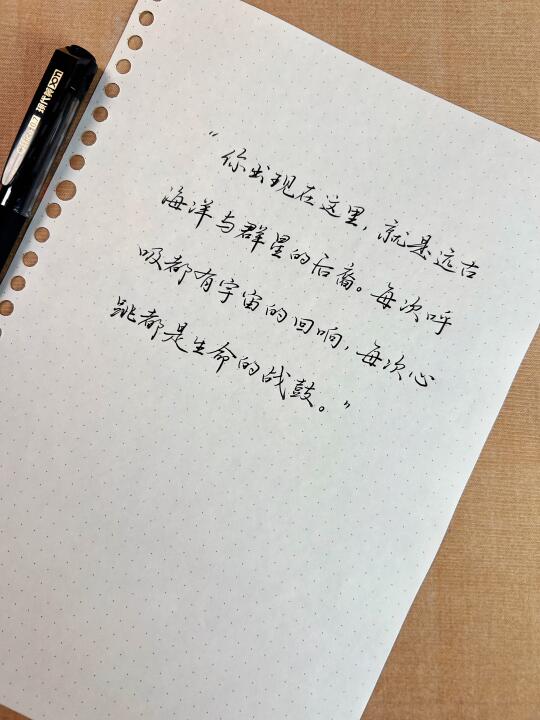 “你出现在这里，就是远古
海洋与群星的后裔。每次呼
吸都有宇宙的回响，每次心
跳都是生命的战鼓。”
现代美